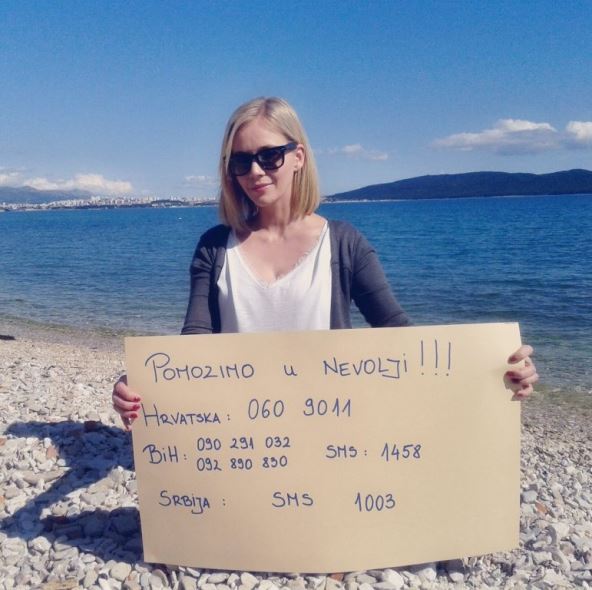 POMOZIMO U NEVOLJI!!!
HRVATSKA: 060 9011
BiH: 090 291 032
092 890 890 SMS: 1458
SRBIJA: SMS 1003